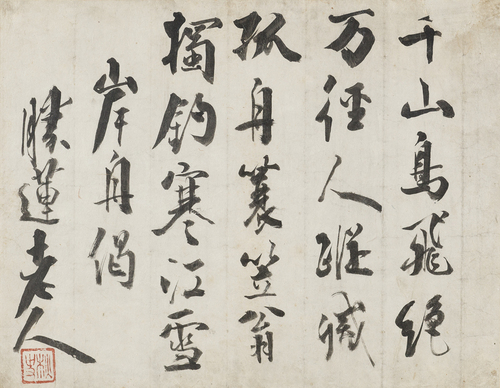 千山鳥飛絶
万徑人蹤滅
孤舟蓑笠翁
獨釣寒江雪
岸舟偈
勝蓮老人
秋史